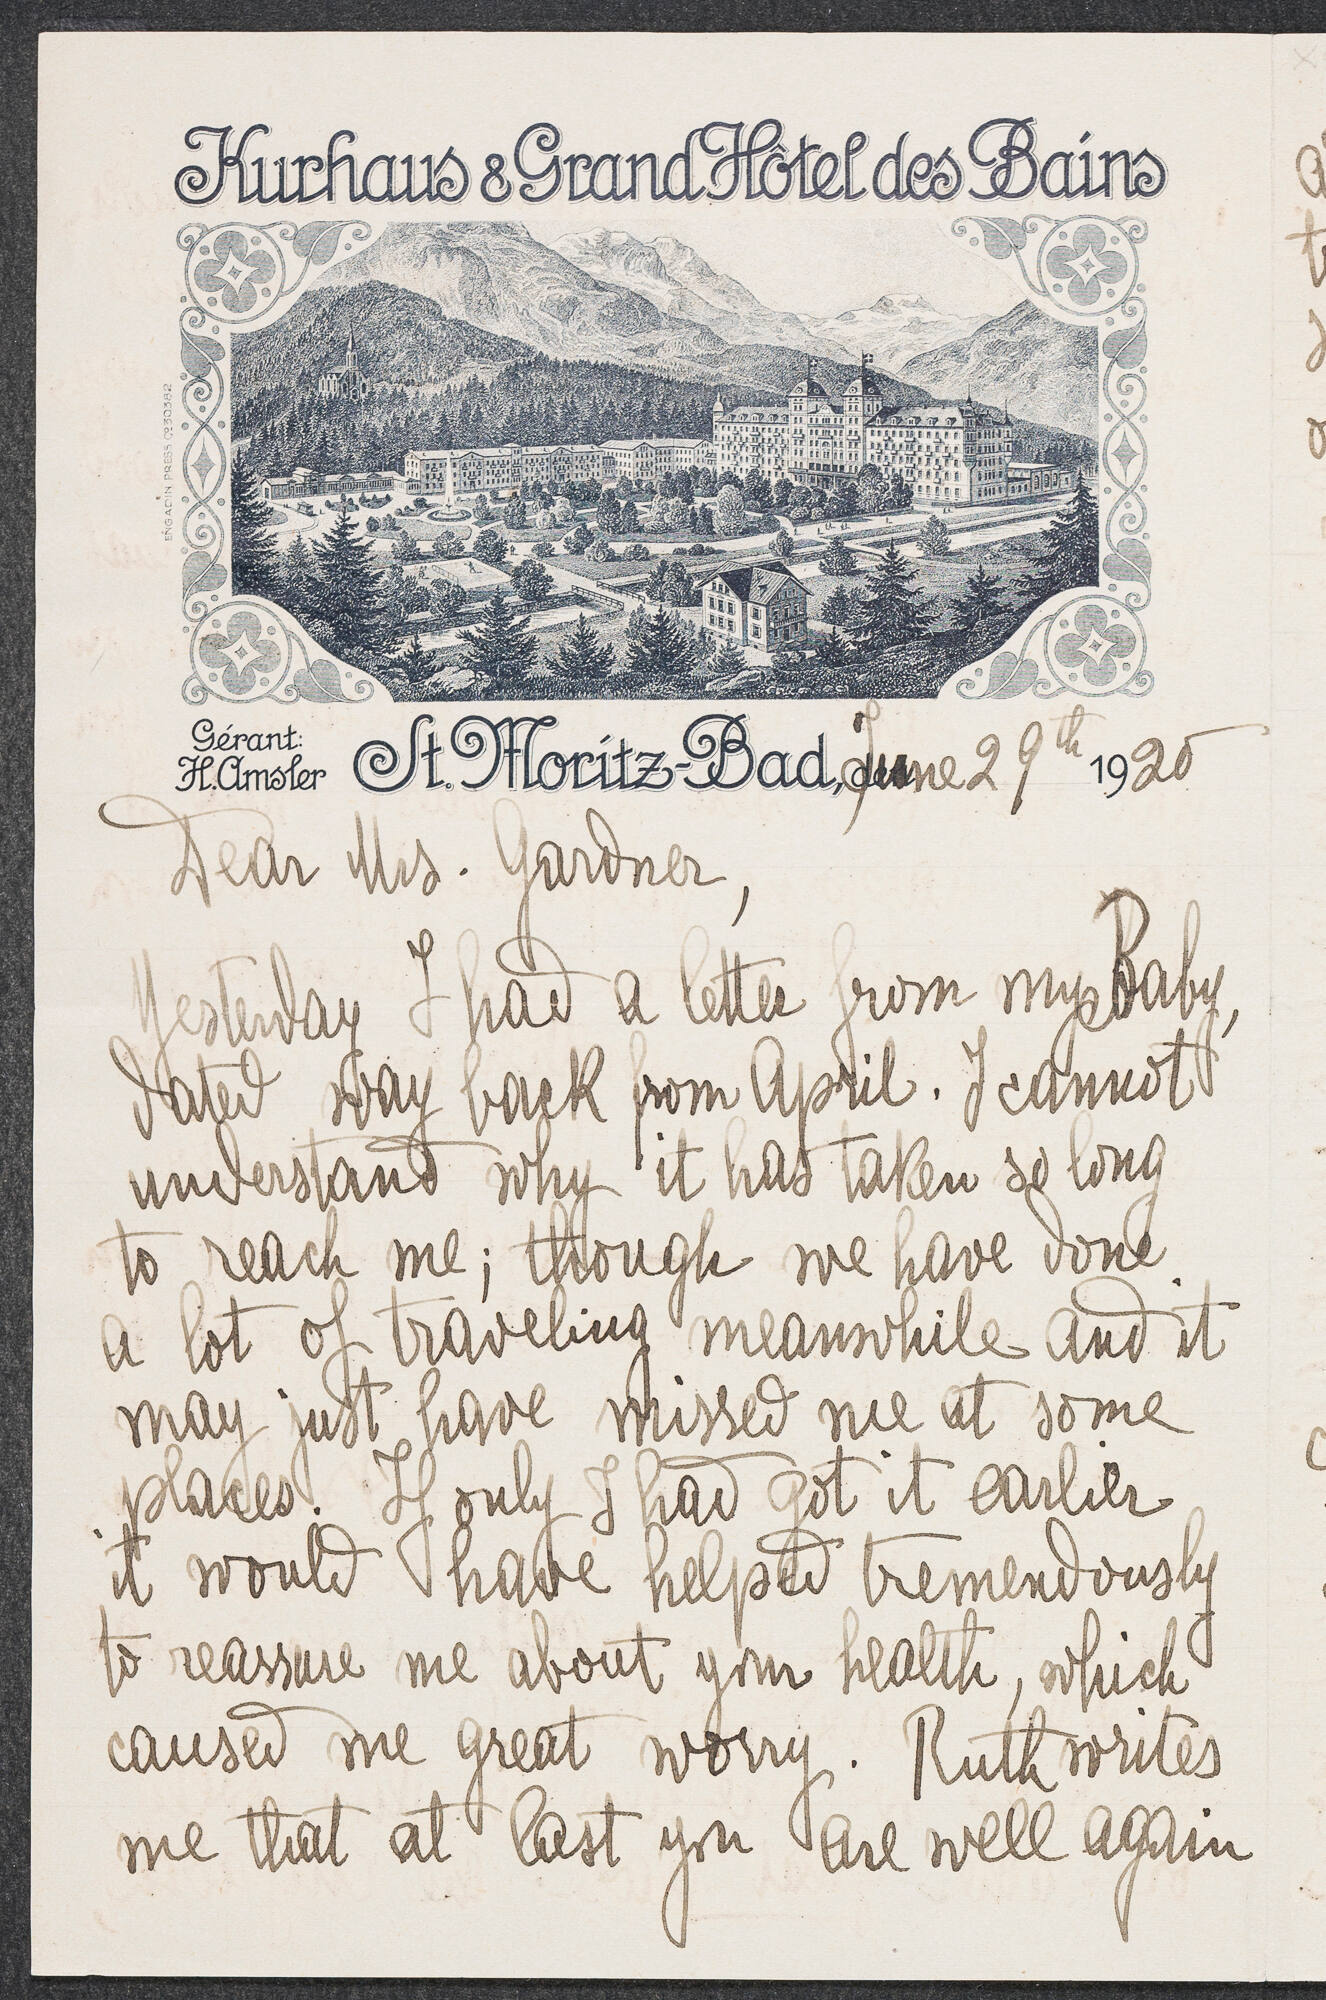 Kurhaus & Grand Hôtel des Bains
ENGADIN PRESS Co 30382
Gérant:
H. Amsler
St. Moritz-Bad, den June 29th 1920
Dear Mrs. Gardner,
Yesterday I had a letter from my Baby,
dated way back from April. I cannot
understand why it has taken so long
to reach me; though we have done
a lot of traveling meanwhile and it
may just have missed me at some
places. If only I had got it earlier
it would have helped tremendously
to reassure me about your health, which
caused me great worry. Ruth writes
me that at last you are well again